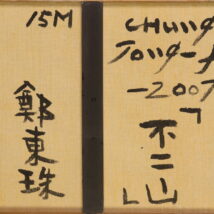 15M
鄭東珠
CHUNG
TONG-
-2007
「不二山」